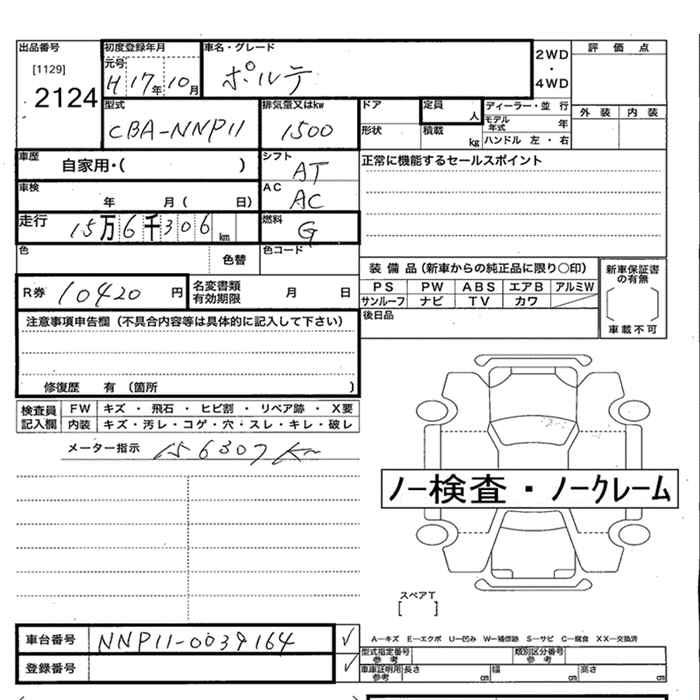 出品番号 初度登録年月 車名・グレード 2WD・4WD 評価点
[1129] 元号 H17年10月 ポルテ
2124 外装 内装
型式 排気量又はkw ドア 定員 人 ディーラー・並行
CBA-NNP11 1500 形状 積載 kg モデル年式 年
ハンドル 左・右
車歴 自家用・( ) シフト AT 正常に機能するセールスポイント
車検 年 月( 日) AC AC
走行 15万6千306km 燃料 G
色 色替 色コード
装備品(新車からの純正品に限り○印) 新車保証書の有無
R券 10420円 名変書類有効期限 月 日 PS PW ABS エアB アルミW
サンルーフ ナビ TV カワ
後日品 車載不可
注意事項申告欄(不具合内容等は具体的に記入して下さい)
修復歴 有(箇所 )
検査員記入欄 FW キズ・飛石・ヒビ割・リペア跡・X要
内装 キズ・汚レ・コゲ・穴・スレ・キレ・破レ
メーター指示 156307Km
ノー検査・ノークレーム
スペアT
[ ]
車台番号 NNP11-0039164 ✓ A―キズ E―エクボ U―凹み W―補修跡 S―サビ C―腐食 XX―交換済
型式指定番号 参考 類別区分番号 参考
登録番号 ✓ 車庫証明用参考 長さ cm 幅 cm 高さ cm